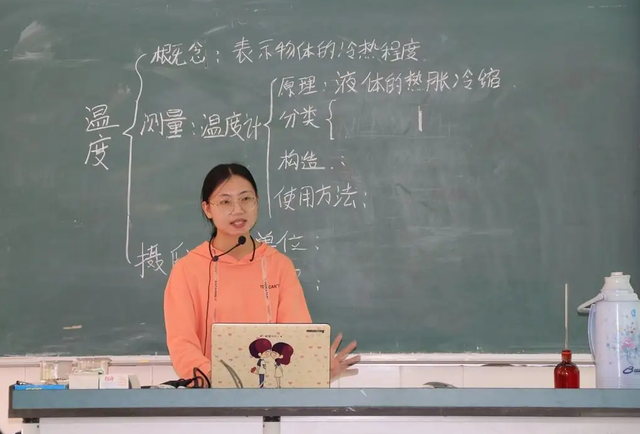 温度
概念：表示物体的冷热程度
测量：温度计
原理：液体的热胀冷缩
分类
构造：
使用方法：
摄氏 单位：
：